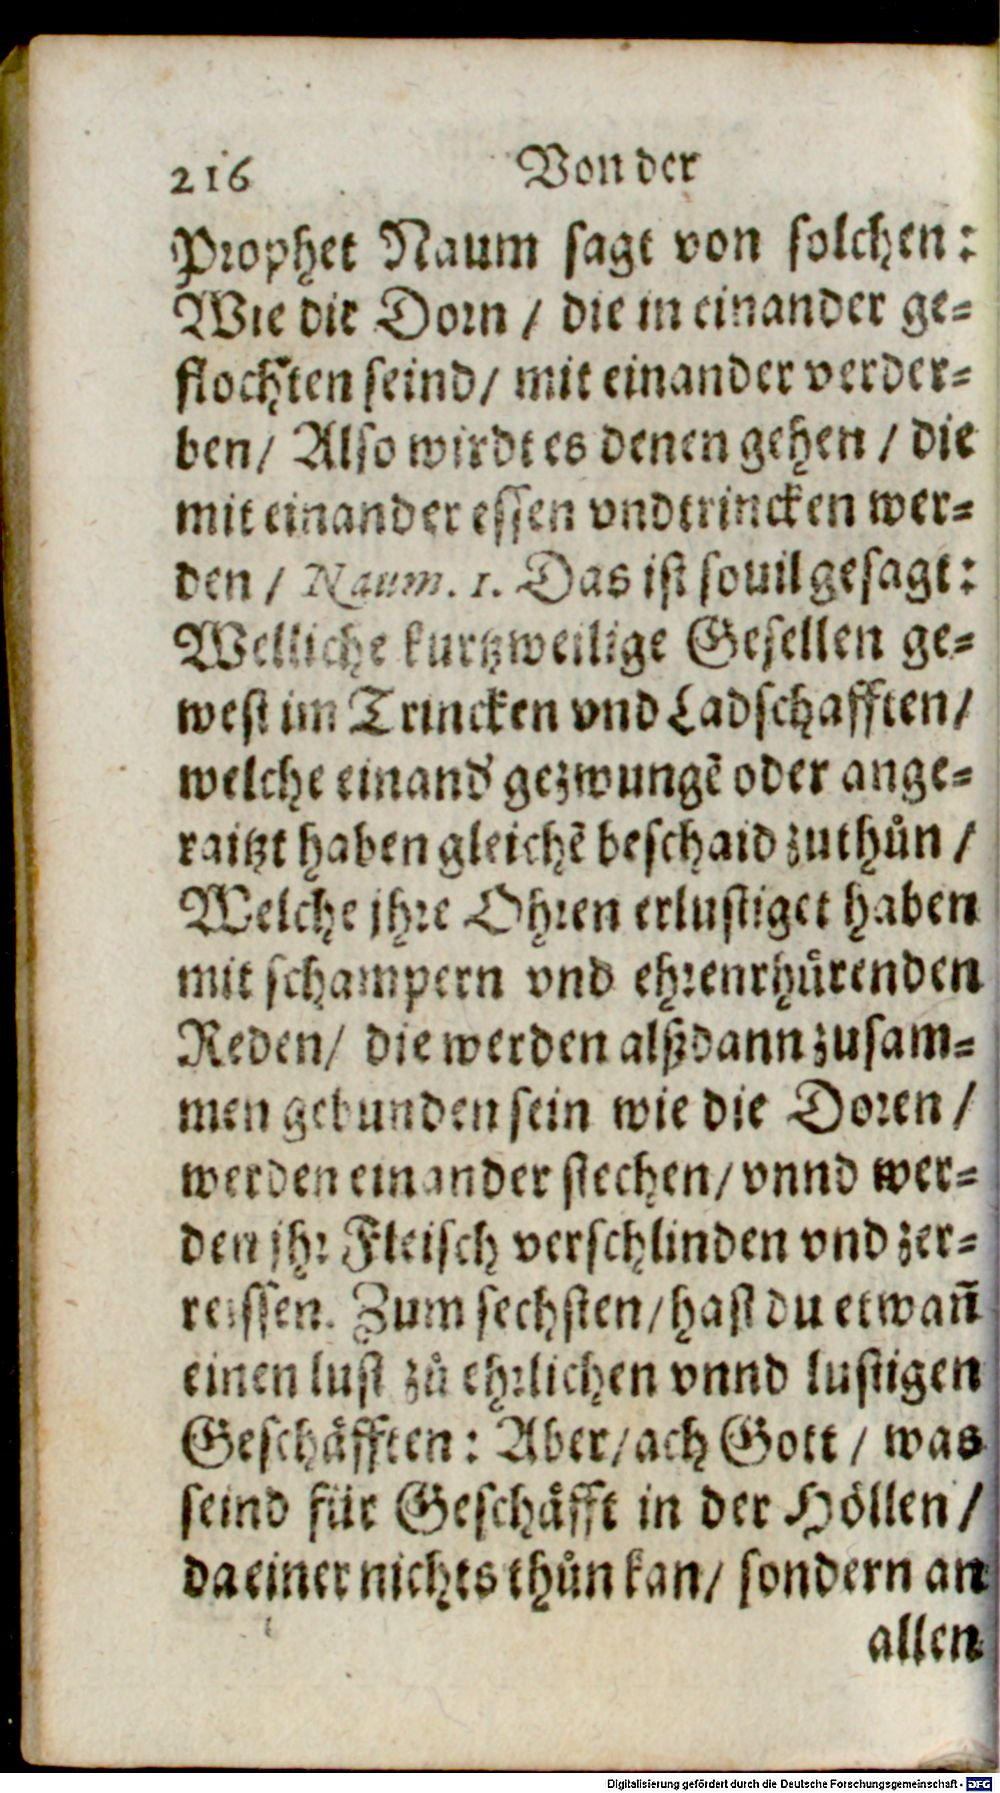 216 Von der
Prophet Naum sagt von solchen:
Wie die Dorn / die in einander ge-
flochten seind/ mit einander verder-
ben/ Also wirdt es denen gehen / die
mit einander essen vnd trincken wer-
den / Naum. 1. Das ist souil gesagt:
Welliche kurtzweilige Gesellen ge-
west im Trincken vnd Ladschafften/
welche einand' gezwungẽ oder ange-
raitzt haben gleichẽ beschaid zuthůn /
Welche jhre Ohren erlustiget haben
mit schampern vnd ehrenrhůrenden
Reden/ die werden alßdann zusam-
men gebunden sein wie die Doren /
werden einander stechen/ vnnd wer-
den jhr Fleisch verschlinden vnd zer-
reissen. Zum sechsten/ hast du etwañ
einen lust zů ehrlichen vnnd lustigen
Geschäfften: Aber/ ach Gott / was
seind für Geschäfft in der Höllen /
da einer nichts thůn kan/ sondern an
allen
Digitalisierung gefördert durch die Deutsche Forschungsgemeinschaft - DFG